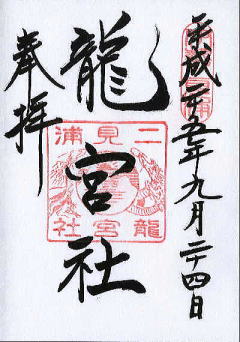 平成二十五年九月二十四日
龍宮社
奉拝
二見浦
龍宮社